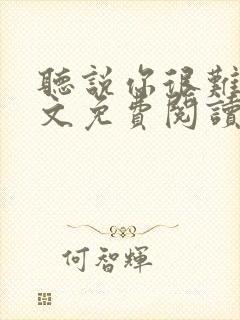 聽說你很難
文免費閱讀
何智輝